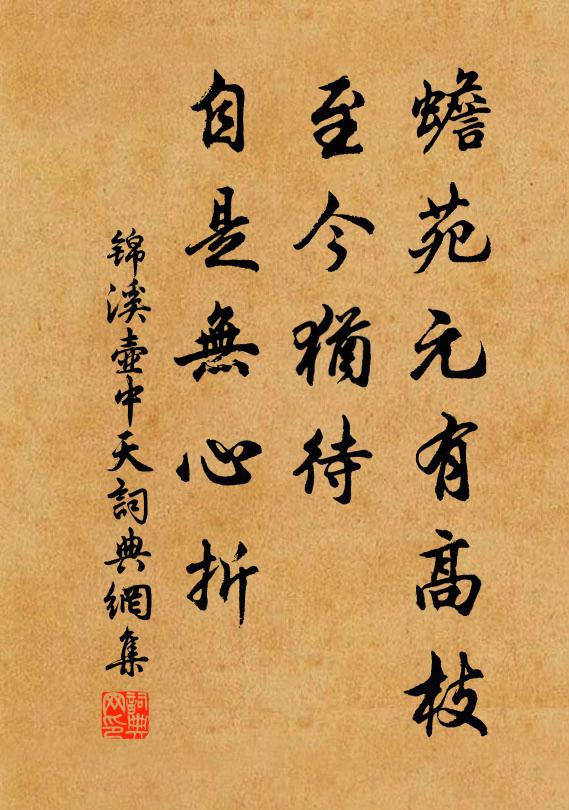 蟾苑元有高枝
至今猶待
自是無心折
锦溪壺中天詞典網集
詞典网印